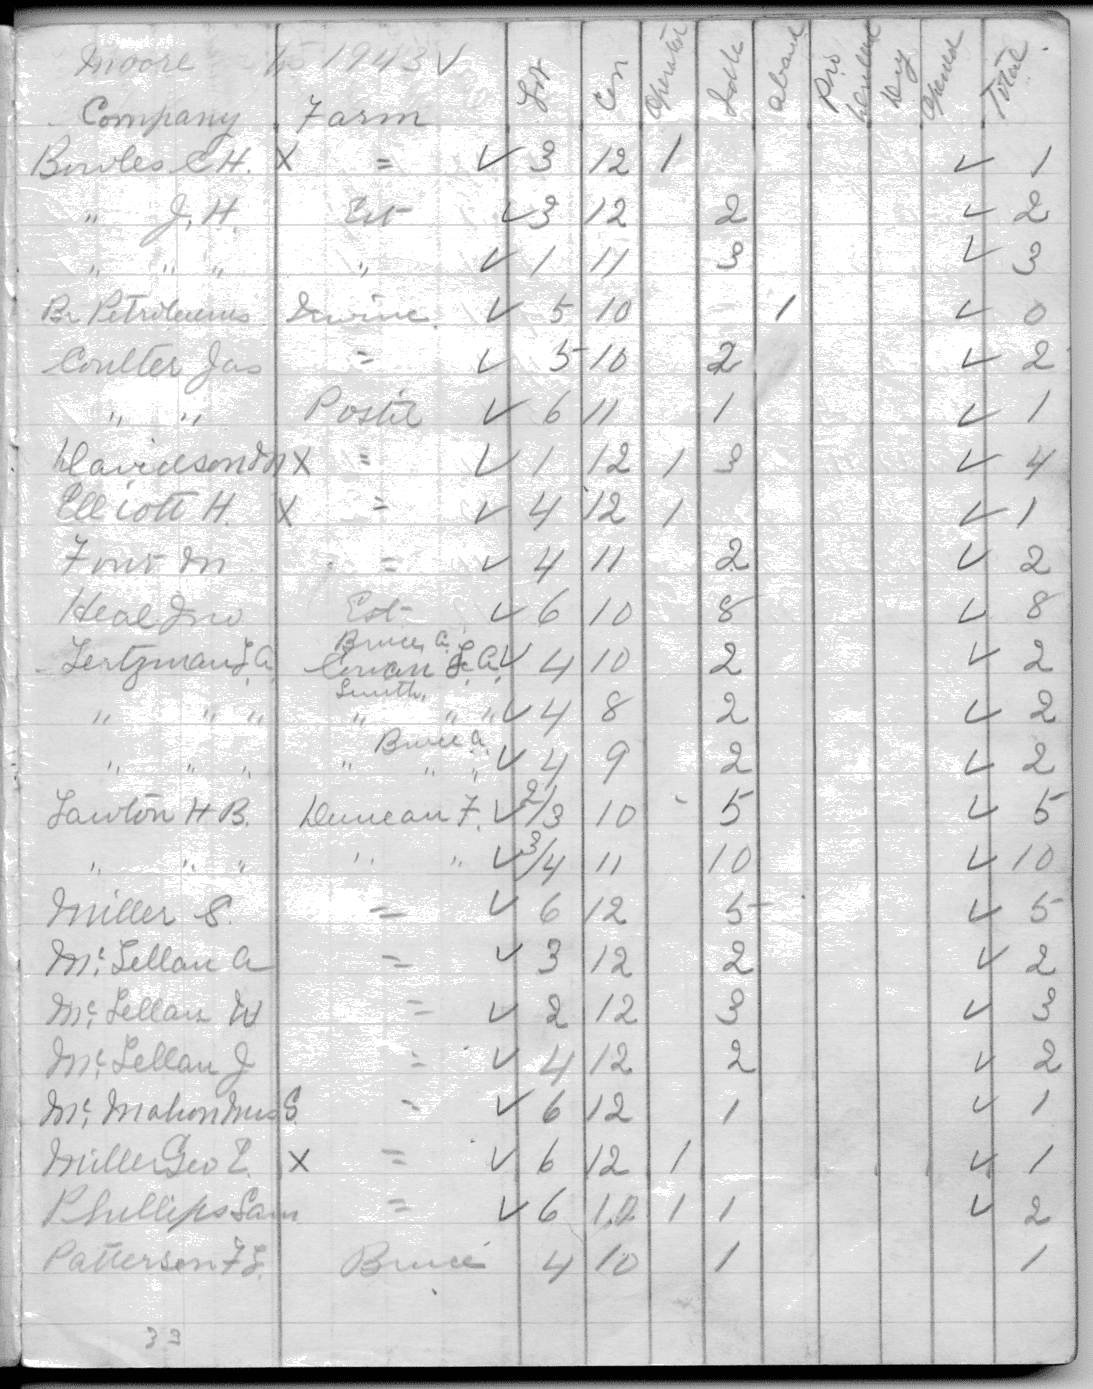 Moore 1943 ✓
Company Farm Lot Con Operator Idle aband Pro Drilled Dry Opened Total
Bowles C H. X = ✓ 3 12 1 ✓ 1
" J. H. Est ✓ 3 12 2 ✓ 2
" " " " ✓ 1 11 3 ✓ 3
Br Petroleums Irwine. ✓ 5 10 1 ✓ 0
Coulter Jas = ✓ 5 10 2 ✓ 2
" " Postil ✓ 6 11 1 ✓ 1
Davidson M X = ✓ 1 12 1 3 ✓ 4
Elliott H. X = ✓ 4 12 1 ✓ 1
M = ✓ 4 11 2 ✓ 2
Heal Jno Est ✓ 6 10 8 ✓ 8
Bruce, A.
Lertzman L. A. Cowan L. A. ✓ 4 10 2 ✓ 2
Smith,
" " " " " " ✓ 4 8 2 ✓ 2
Bruce A.
" " " " " " ✓ 4 9 2 ✓ 2
Lawton H B. Duncan F. ✓ 2/3 10 5 ✓ 5
" " " " " ✓ 3/4 11 10 ✓ 10
Miller S. = ✓ 6 12 5 ✓ 5
Mc Lellan A = ✓ 3 12 2 ✓ 2
Mc Lellan W = ✓ 2 12 3 ✓ 3
Mc Lellan J = ✓ 4 12 2 ✓ 2
Mc Mahon Mrs S. = ✓ 6 12 1 ✓ 1
Miller Geo E. X = ✓ 6 12 1 ✓ 1
Phillips Sam = ✓ 6 12 1 1 ✓ 2
Patterson F L. Bruce 4 10 1 1
33